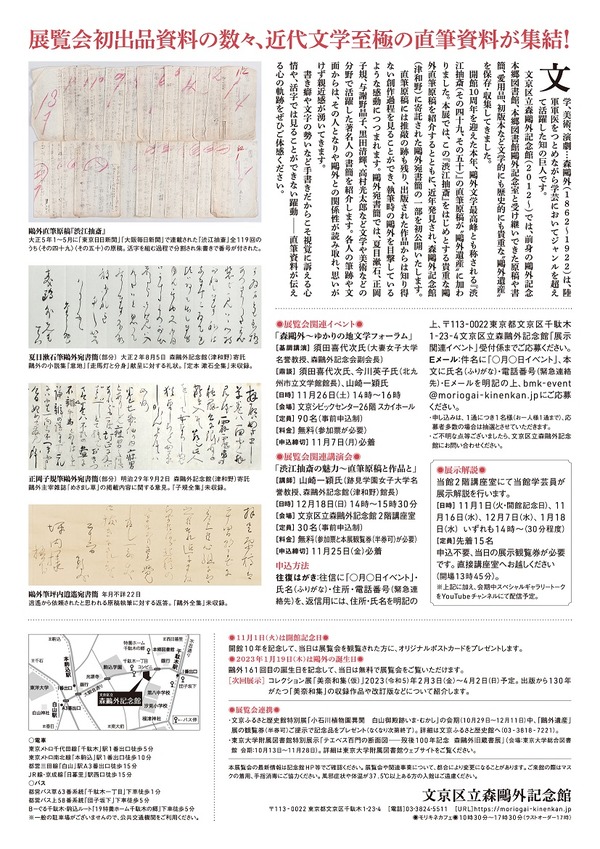 展覧会初出品資料の数々、近代文学至極の直筆資料が集結！
文学、美術、演劇…森鷗外（1862〜1922）は、陸
軍軍医をつとめながら学芸においてジャンルを超え
て活躍した知の巨人です。
文京区立森鷗外記念館（2012〜）では、前身の鷗外記念
本郷図書館、本郷図書館鷗外記念室と受け継いできた原稿や書
簡、愛用品、初版本など文学的にも歴史的にも貴重な“鷗外遺産”
を保存・収集してきました。
開館10周年を迎えた本年、鷗外文学最高峰とも称される『渋
江抽斎』（その四十九、その五十）の直筆原稿が“鷗外遺産”に加わ
りました。本展では、この『渋江抽斎』をはじめとする貴重な鷗
外直筆原稿を紹介するとともに、近年発見され、森鷗外記念館
（津和野）に寄託された鷗外宛書簡の一部を初公開いたします。
直筆原稿には推敲の跡も残り、出版された作品からは知り得
ない創作過程を見ることができ、執筆時の鷗外を目撃している
ような感動につつまれます。鷗外宛書簡では、夏目漱石、正岡
子規、与謝野晶子、黒田清輝、高村光太郎など文学や美術などの
分野で活躍した著名人の書簡を紹介します。各人の筆跡や文
面からは、その人となりや鷗外との関係性が読み取れ、思いが
けず親近感が湧いてきます。
書き癖や文字の勢いなど手書きだからこそ視覚に訴える心
情や、活字では見ることができない躍動――直筆資料が伝え
る心の軌跡をぜひご体感ください。
鷗外直筆原稿「渋江抽斎」
大正5年1〜5月に「東京日日新聞」「大阪毎日新聞」で連載された「渋江抽斎」全119回の
うち（その四十九）（その五十）の原稿。活字を組む過程で分割され朱書きで番号が付された。
夏目漱石筆鷗外宛書簡（部分） 大正2年8月5日 森鷗外記念館（津和野）寄託
鷗外の小説集『意地』『走馬灯と分身』献呈に対する礼状。『定本 漱石全集』未収録。
正岡子規筆鷗外宛書簡（部分） 明治29年9月2日 森鷗外記念館（津和野）寄託
鷗外主宰雑誌「めさまし草」の掲載内容に関する意見。『子規全集』未収録。
鷗外筆坪内逍遙宛書簡 年月不詳22日
逍遙から依頼されたと思われる原稿執筆に対する返答。『鷗外全集』未収録。
●展覧会関連イベント●
「森鷗外〜ゆかりの地文学フォーラム」
［基調講演］須田喜代次氏（大妻女子大学
名誉教授、森鷗外記念会副会長）
［鼎談］須田喜代次氏、今川英子氏（北九
州市立文学館館長）、山崎一穎氏
［日時］11月26日（土）14時〜16時
［会場］文京シビックセンター26階 スカイホール
［定員］90名（事前申込制）
［料金］無料（参加票が必要）
［申込締切］11月7日（月）必着
●展覧会関連講演会●
「渋江抽斎の魅力〜直筆原稿と作品と」
［講師］山崎一穎氏（跡見学園女子大学名
誉教授、森鷗外記念館（津和野）館長）
［日時］12月18日（日）14時〜15時30分
［会場］文京区立森鷗外記念館2階講座室
［定員］30名（事前申込制）
［料金］無料（参加票と本展観覧券（半券可）が必要）
［申込締切］11月25日（金）必着
申込方法
往復はがき：往信に「〇月〇日イベント」・
氏名（ふりがな）・住所・電話番号（緊急連
絡先）を、返信用には、住所・氏名を明記の
上、〒113-0022東京都文京区千駄木
1-23-4文京区立森鷗外記念館「展示
関連イベント」受付係までご応募ください。
Eメール：件名に「〇月〇日イベント」、本
文に氏名（ふりがな）・電話番号（緊急連絡
先）・Eメールを明記の上、bmk-event
@moriogai-kinenkan.jpにご応募
ください。
・申し込みは、1通につき1名様（お一人様1通まで）、応
募者多数の場合は抽選とさせていただきます。
・ご不明な点等ございましたら、文京区立森鷗外記念
館にお問い合わせください。
●展示解説●
当館2階講座室にて当館学芸員が
展示解説を行います。
［日時］11月1日（火・開館記念日）、11
月16日（水）、12月7日（水）、1月18
日（水） いずれも14時〜（30分程度）
［定員］先着15名
申込不要、当日の展示観覧券が必要
です。直接講座室へお越しください
（開場13時45分）。
＊上記に加え、会期中スペシャルギャラリートーク
をYouTubeチャンネルにて配信予定。
●11月1日（火）は開館記念日●
開館10年を記念して、当日は展覧会を観覧された方に、オリジナルポストカードをプレゼントします。
●2023年1月19日（木）は鷗外の誕生日●
鷗外161回目の誕生日を記念して、当日は無料で展覧会をご覧いただけます。
［次回展示］コレクション展「美奈和集（仮）」2023（令和5）年2月3日（金）〜4月2日（日）予定。出版から130年
がたつ「美奈和集」の収録作品や改訂版などについて紹介します。
●展覧会連携●
・文京ふるさと歴史館特別展「小石川植物園界隈 白山御殿跡いま・むかし」の会期（10月29日〜12月11日）中、「鷗外遺産」
展の観覧券（半券可）ご提示で記念品をプレゼント（なくなり次第終了）。詳細は文京ふるさと歴史館へ（03-3818-7221）。
・東京大学附属図書館特別展示「テエベス百門の断面図――歿後100年記念 森鷗外旧蔵書展」（会場：東京大学総合図書
館 会期：10月13日〜11月28日）。詳細は東京大学附属図書館ウェブサイトをご覧ください。
本展覧会の最新情報は記念館HP等でご確認ください。展覧会や関連事業について、都合により変更になることがあります。ご来館の際はマス
クの着用、手指消毒にご協力ください。風邪症状や体温が37.5℃以上ある方の入館はご遠慮ください。
文京区立
森鷗外記念館
○電車
東京メトロ千代田線「千駄木」駅1番出口徒歩5分
東京メトロ南北線「本駒込」駅1番出口徒歩10分
都営三田線「白山」駅A3番出口徒歩15分
JR線・京成線「日暮里」駅西口徒歩15分
○バス
都営バス草63番系統「千駄木一丁目」下車徒歩1分
都営バス上58番系統「団子坂下」下車徒歩5分
B〜ぐる千駄木・駒込ルート「19特養ホーム千駄木の郷」下車徒歩5分
＊一般の駐車場がございませんので、公共交通機関をご利用ください。
文京区立森鷗外記念館
〒113-0022 東京都文京区千駄木1-23-4 ［電話］03-3824-5511 ［URL］https://moriogai-kinenkan.jp
●モリキネカフェ●10時30分〜17時30分（ラストオーダー17時）